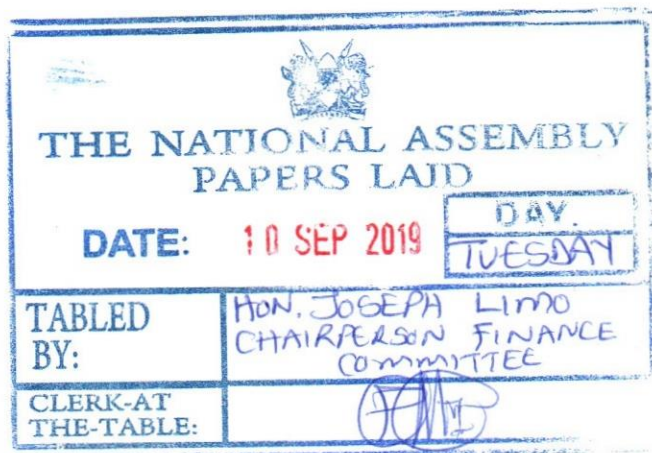 THE NATIONAL ASSEMBLY
PAPERS LAID
DATE: 10 SEP 2019
DAY.
TUESDAY
TABLED
BY:
HON. JOSEPH LIMO
CHAIRPERSON FINANCE
COMMITTEE
CLERK-AT
THE-TABLE: